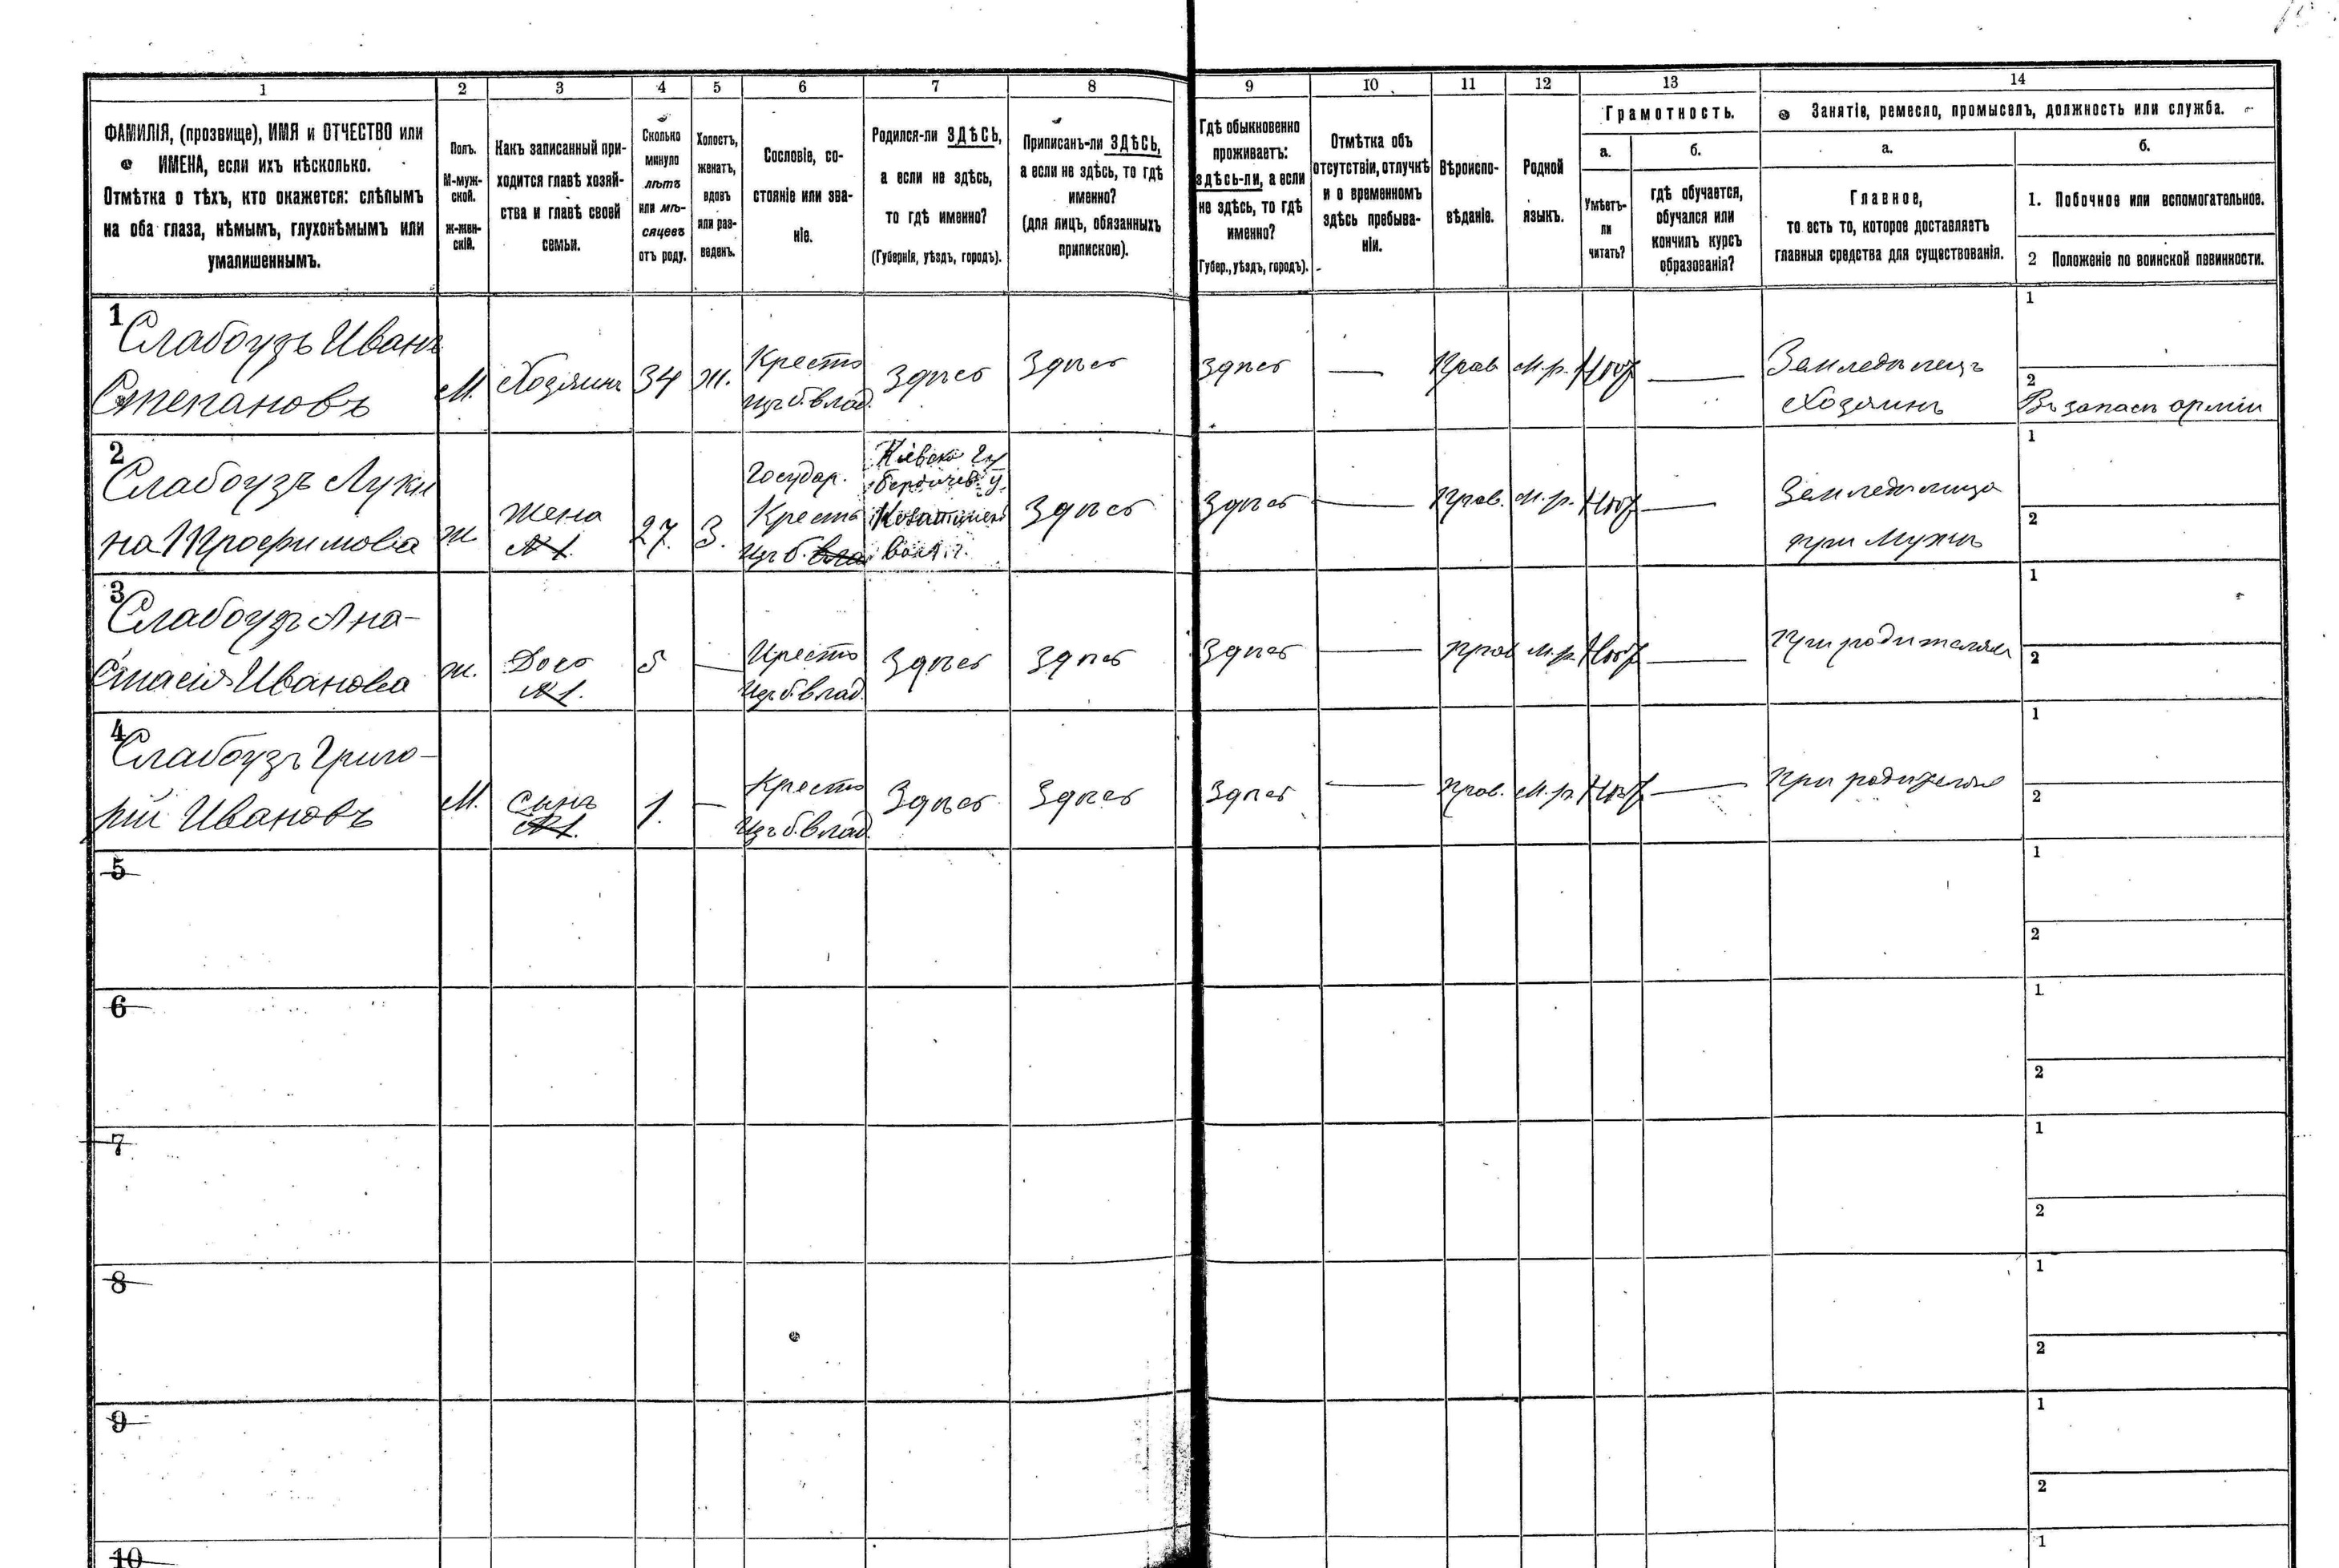 1 2 3 4 5 6 7 8 9 10 11 12 13 14
ФАМИЛІЯ, (прозвище), ИМЯ и ОТЧЕСТВО или
ИМЕНА, если ихъ нѣсколько.
Отмѣтка о тѣхъ, кто окажется: слѣпымъ
на оба глаза, нѣмымъ, глухонѣмымъ или
умалишеннымъ.
Полъ.
М-муж-
ской.
Ж-жен-
скій.
Какъ записанный при-
ходится главѣ хозяй-
ства и главѣ своей
семьи.
Сколько
минуло
лѣтъ
или мѣ-
сяцевъ
отъ роду.
Холостъ,
женатъ,
вдовъ
или раз-
веденъ.
Сословіе, со-
стояніе или зва-
ніе.
Родился-ли ЗДѢСЬ,
а если не здѣсь,
то гдѣ именно?
(Губернія, уѣздъ, городъ).
Приписанъ-ли ЗДѢСЬ,
а если не здѣсь, то гдѣ
именно?
(для лицъ, обязанныхъ
припискою).
Гдѣ обыкновенно
проживаетъ:
здѣсь-ли, а если
не здѣсь, то гдѣ
именно?
Губер., уѣздъ, городъ).
Отмѣтка объ
отсутствіи, отлучкѣ
и о временномъ
здѣсь пребыва-
ніи.
Вѣроиспо-
вѣданіе.
Родной
языкъ.
Грамотность.
а.
Умѣетъ-
ли
читать?
б.
гдѣ обучается,
обучался или
кончилъ курсъ
образованія?
Занятіе, ремесло, промыселъ, должность или служба.
а.
Главное,
то есть то, которое доставляетъ
главныя средства для существованія.
б.
1. Побочное или вспомогательное.
2 Положеніе по воинской повинности.
1
Слабоузъ Иванъ
Степановъ
М.
Хозяинъ
34
Ж.
Кресть
изъ б. влад.
Здѣсь
Здѣсь
Здѣсь
—
Прав
М.р.
Нѣт
—
Земледѣлецъ
Хозяинъ
1
2
Въ запасѣ арміи
2
Слабоузъ Луки
на Трофимова
Ж
Жена
№ 1.
27.
З.
Государ.
Кресть
Изъ б. вла
Кіевск Гу
Бердичев. у.
Козатинск
вол.
Здѣсь
Здѣсь
—
Прав.
М.р.
Нѣт
—
Земледѣлица
при Мужѣ
1
2
3
Слабоузъ Ана-
стасія Иванова
Ж.
Дочь
№ 1.
5
—
Кресть
Изъ б. влад.
Здѣсь
Здѣсь
Здѣсь
—
Прав
М.р.
Нѣт
—
При родителях
1
2
4
Слабоузъ Григо-
рій Ивановъ
М.
Сынъ
№ 1.
1.
—
Кресть
Изъ б. влад.
Здѣсь
Здѣсь
Здѣсь
—
Прав.
М.р.
Нѣт
—
При родителях
1
2
5
1
2
6
1
2
7
1
2
8
1
2
9
1
2
10
1